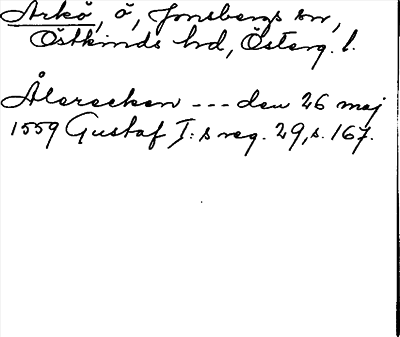 Arkö, ö, Jonsbergs sn,
Östkinds hd, Österg. l.
Ålerecken --- den 26 maj
1559 Gustaf I:s reg. 29, s. 167.